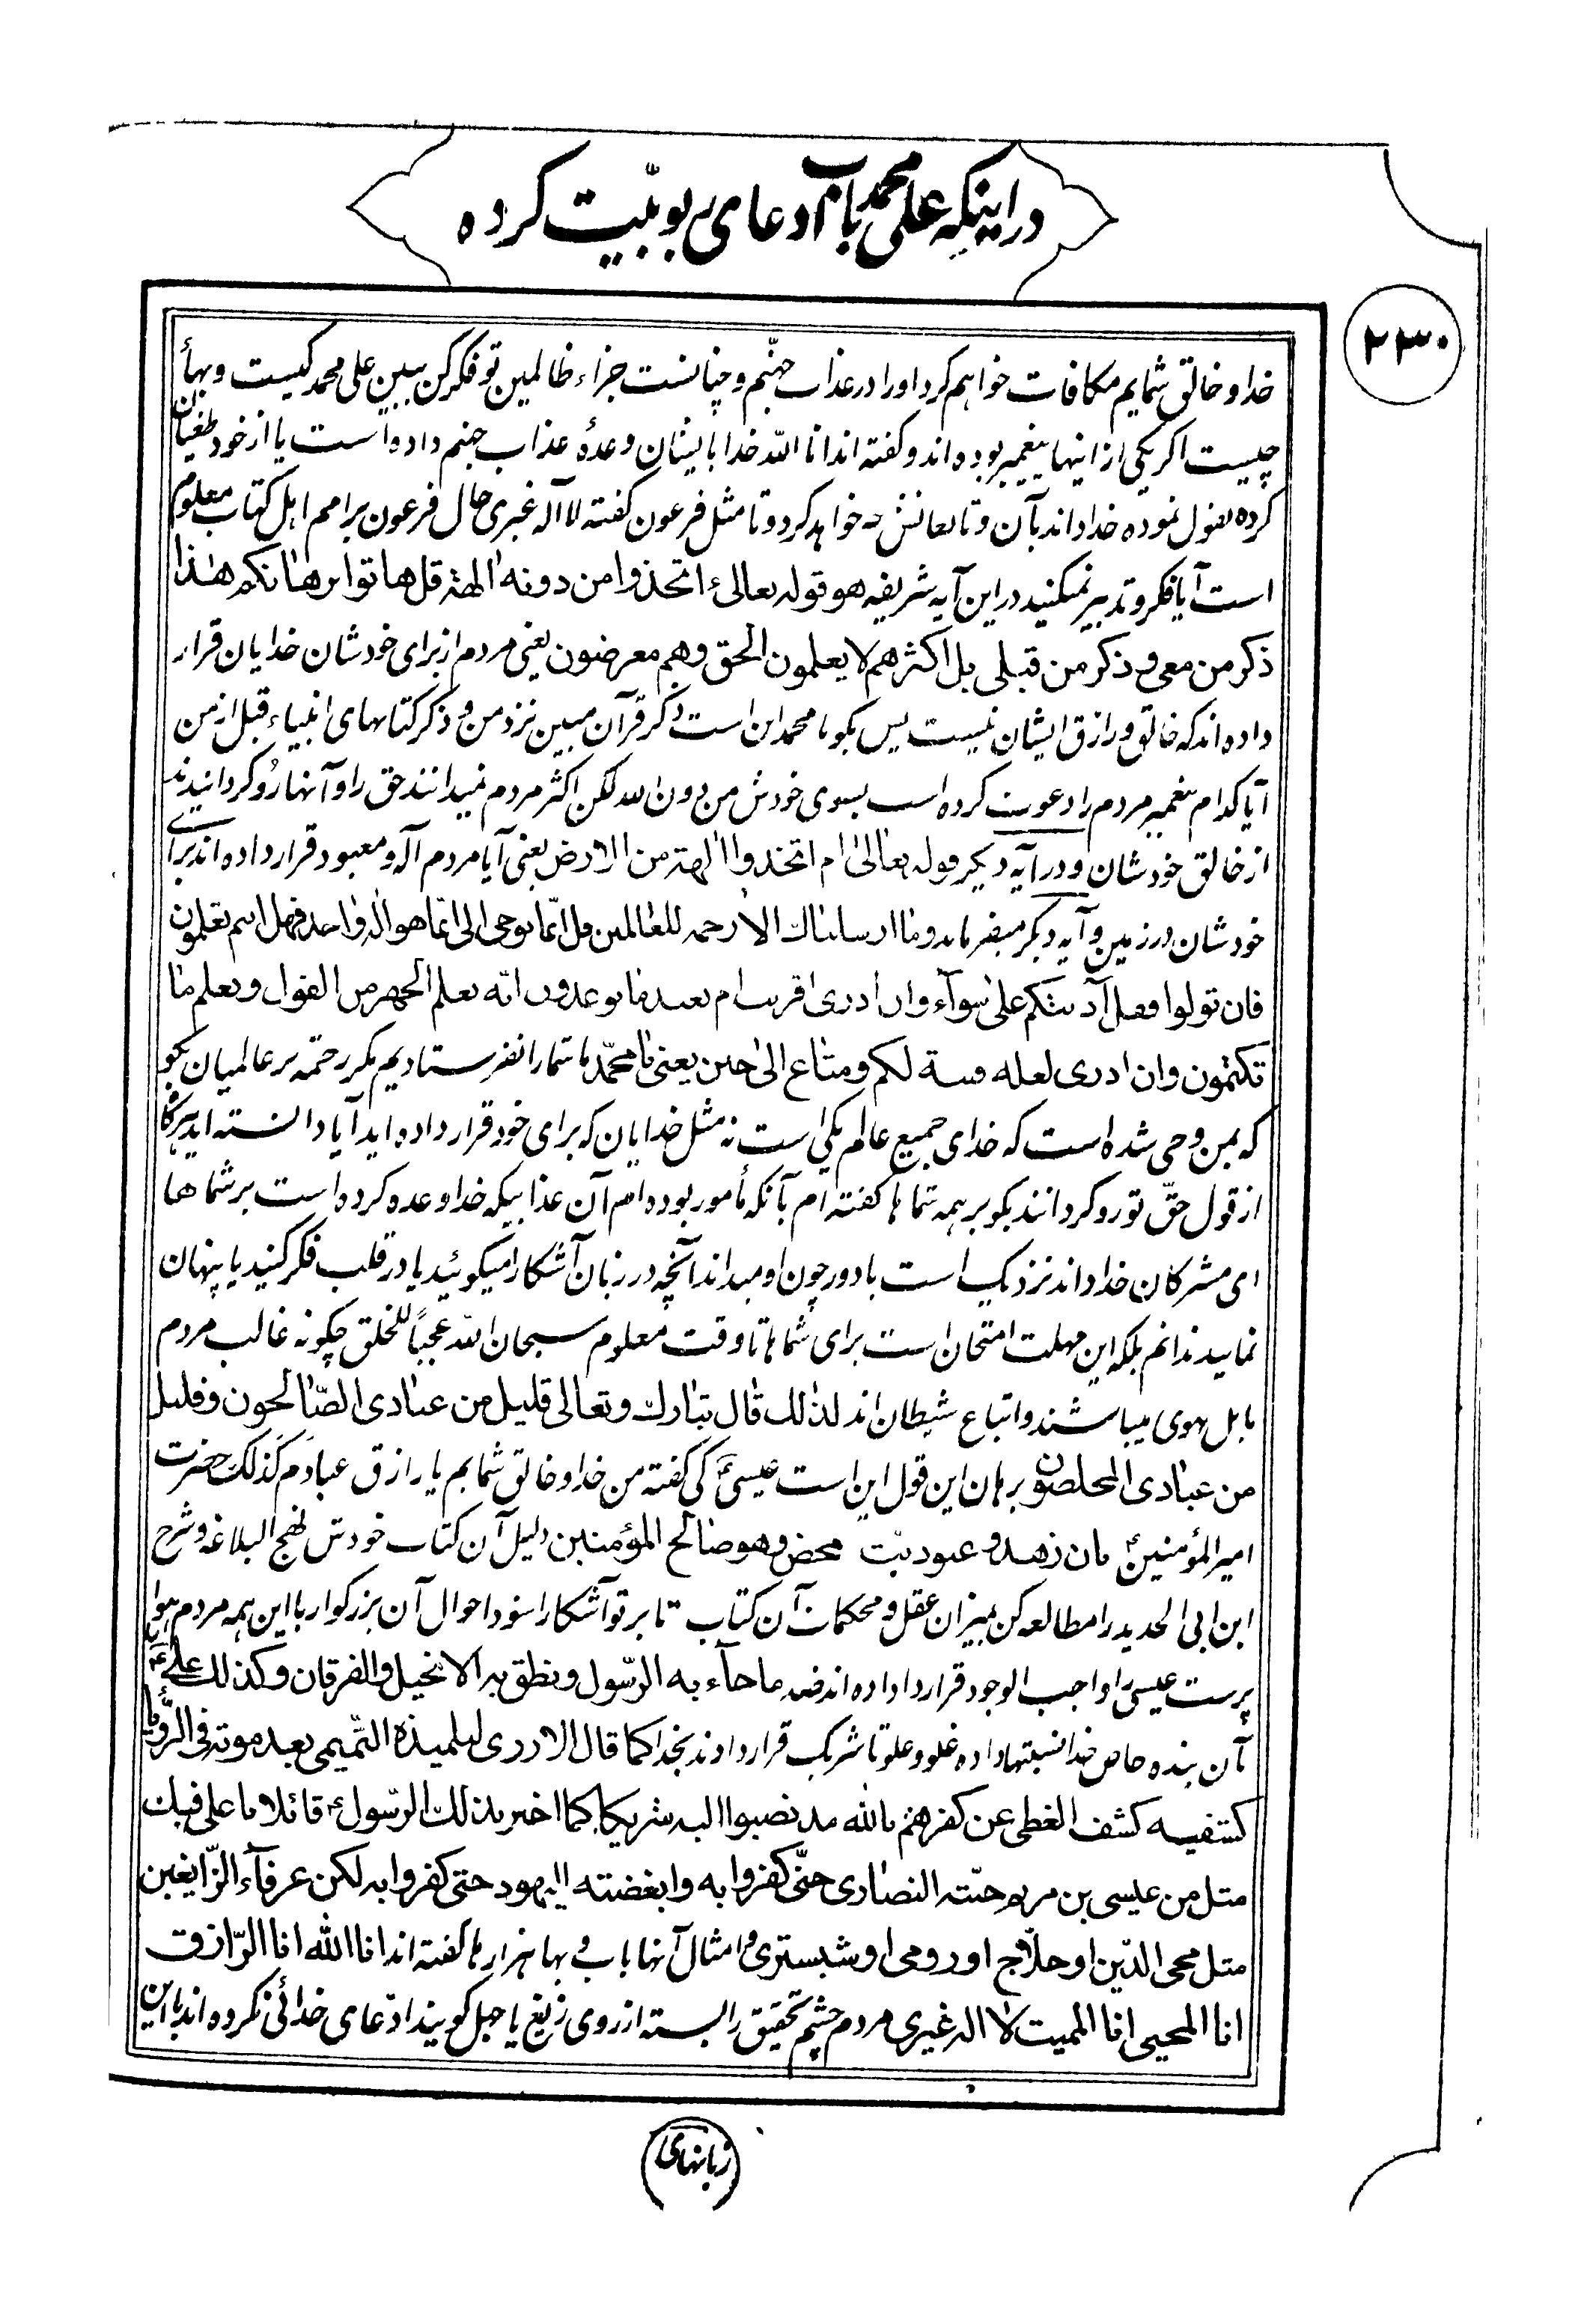 در اینکه علی محمد باب ادعای ربوبیّت کرده
۲۳۰
خدا و خالق شمایم مکافات خواهم کرد او را در عذاب جهنّم و چنانست جزاء ظالمین تو فکر کن ببین علی محمد کیست و بهاء
چیست اکر یکی از اینها پیغمبر بوده اند و کفته اند انا اللّه خدا باینان وعدهٔ عذاب جهنم داده است یا از خود طغیان
کرده خدا داند بآن و تابعانش چه خواهد کرد و تا مثل فرعون کفته لا آله غیری حال فرعون بر امم اهل کتاب معلوم
است آیا فکر و تدبیر نمیکنید در این آیه شریفه هو قوله تعالی ء اتخذوا من دونه الهة قل هاتوا برهانکم هذا
ذکر من معی و ذکر من قبلی بل اکثرهم لا یعلمون الحق و هم معرضون یعنی مردم از برای خودشان خدایان قرار
داده اند که خالق و رازق ایشان نیست پس بکو یا محمد این است ذکر قرآن مبین نزد من و ذکر کتابهای انبیاء قبل از من
آیا کدام پیغمبر مردم را دعوت کرده است بسوی خودش من دون الله لکن اکثر مردم نمیدانند حق را و آنها رُو کردانیدند
از خالق خودشان و در آیه دیکر قوله تعالی ام اتخذوا الهة من الارض یعنی آیا مردم آله و معبود قرار داده اند برای
خودشان در زمین و آیه دیکر میفرماید و ما ارسلناک الا رحمة للعالمین قل انّما یوحی الی انّما هو اله واحد فهل انتم تعلمون
فان تولوا فقل آذنتکم علی سوآء و ان ادری اقریب ام بعید ما توعدون انّه یعلم الجهر من القول و یعلم ما
تکتمون و ان ادری لعله فتنة لکم و متاع الی حین یعنی یا محمّد ما شما را نفرستادیم مکر رحمة بر عالمیان بکو
که بمن وحی شده است که خدای جمیع عالم یکی است نه مثل خدایان که برای خود قرار داده اید آیا دانسته اید هرکاه
از قول حقّ تو رو کردانند بکو بر همه شماها کفته ام بآنکه مأمور بوده ام آن عذابیکه خدا وعده کرده است بر شماها
ای مشرکان خدا داند نزدیک است یا دور چون او میداند آنچه در زبان آشکارا میکوئید یا در قلب فکر کنید یا پنهان
نمایید ندانم بلکه این مهلت امتحان است برای شماها تا وقت معلوم سبحان اللّه عجباً للخلق چکونه غالب مردم
با هل هوی میباشند و اتباع شیطان اند لذلک قال تبارک و تعالی قلیل من عبادی الصّالحون و قلیل
من عبادی المخلصون برهان این قول این است عیسی کی کفته من خدا و خالق شمایم یا رازق عبادم کذلک حضرت
امیر المؤمنین بان زهد و عبودیّت محض و هو صالح المؤمنین دلیل آن کتاب خودش نهج البلاغه و شرح
ابن ابی الحدید را مطالعه کن بمیزان عقل و محکمات آن کتاب تا بر تو آشکارا شود احوال آن بزرکوار با این همه مردم هوا
پرست عیسی را واجب الوجود قرار داده اند ضد ما جآء به الرّسول و نطق به الانجیل و الفرقان و کذلک علی
آن بنده خاص خدا نسبتها داده غلو و علو تا شریک قرار دادند بخدا کما قال الازدری لتلمیذه التّمیمی بعد موته فی الرّؤیا
کشفیه کشف الغطی عن کفرهم بالله قد نصبوا الیه شریکا کما اخبر بذلک الرّسول قائلا یا علی فیک
مثل من عیسی بن مریم حبّته النصاری حتّی کفروا به و ابغضته الیهود حتی کفروا به لکن عرفآء الزّایغین
مثل محی الدّین او حلّاج او رومی او شبستری و امثال آنها باب و بها هزارها کفته اند انا الله انا الرّازق
انا المحیی انا الممیت لا اله غیری مردم چشم تحقیق را بسته از روی زیغ یا جهل کویند ادّعای خدائی نکرده اند با این
زبانهای